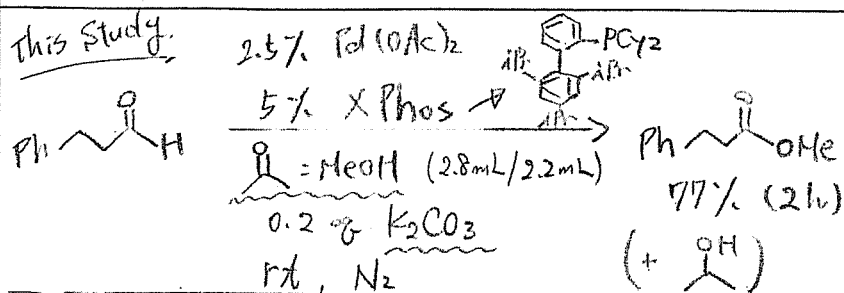 This Study.
2.5% Pd(OAc)2
5% XPhos
PCy2
iPr
iPr
iPr
Ph
O
H
O
= MeOH (2.8mL/2.2mL)
0.2 eq K2CO3
rt, N2
Ph
O
OMe
77% (2h)
(+ OH)